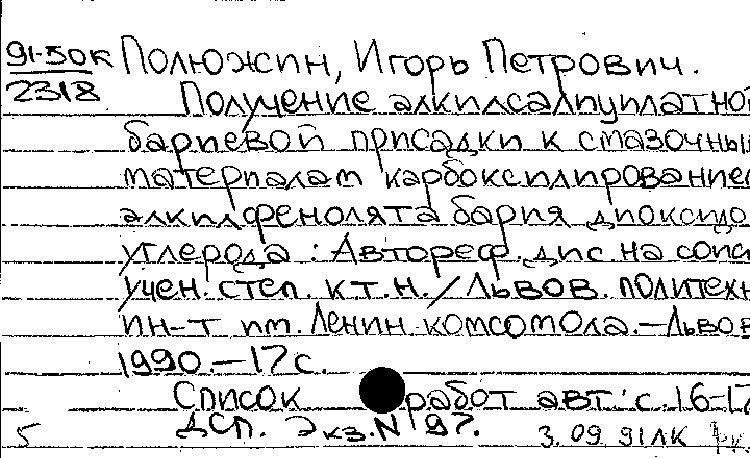 91-50к Полюжин, Игорь Петрович.
2318 Получение алкилсалицилатной
бариевой присадки к смазочным
материалам карбоксилированием
алкилфенолята бария диоксидо
углерода : Автореф. дис. на соиск
учен. степ. к.т.н. / Львов. политехн
ин-т им. Ленин. комсомола. - Львов
1990. - 17 с.
Список работ авт.: с. 16-17
ДСП. Экз. N 97.
5 3.09.91 ЛК